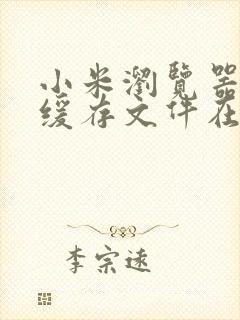 小米瀏覽器
緩存文件在
李宗遠